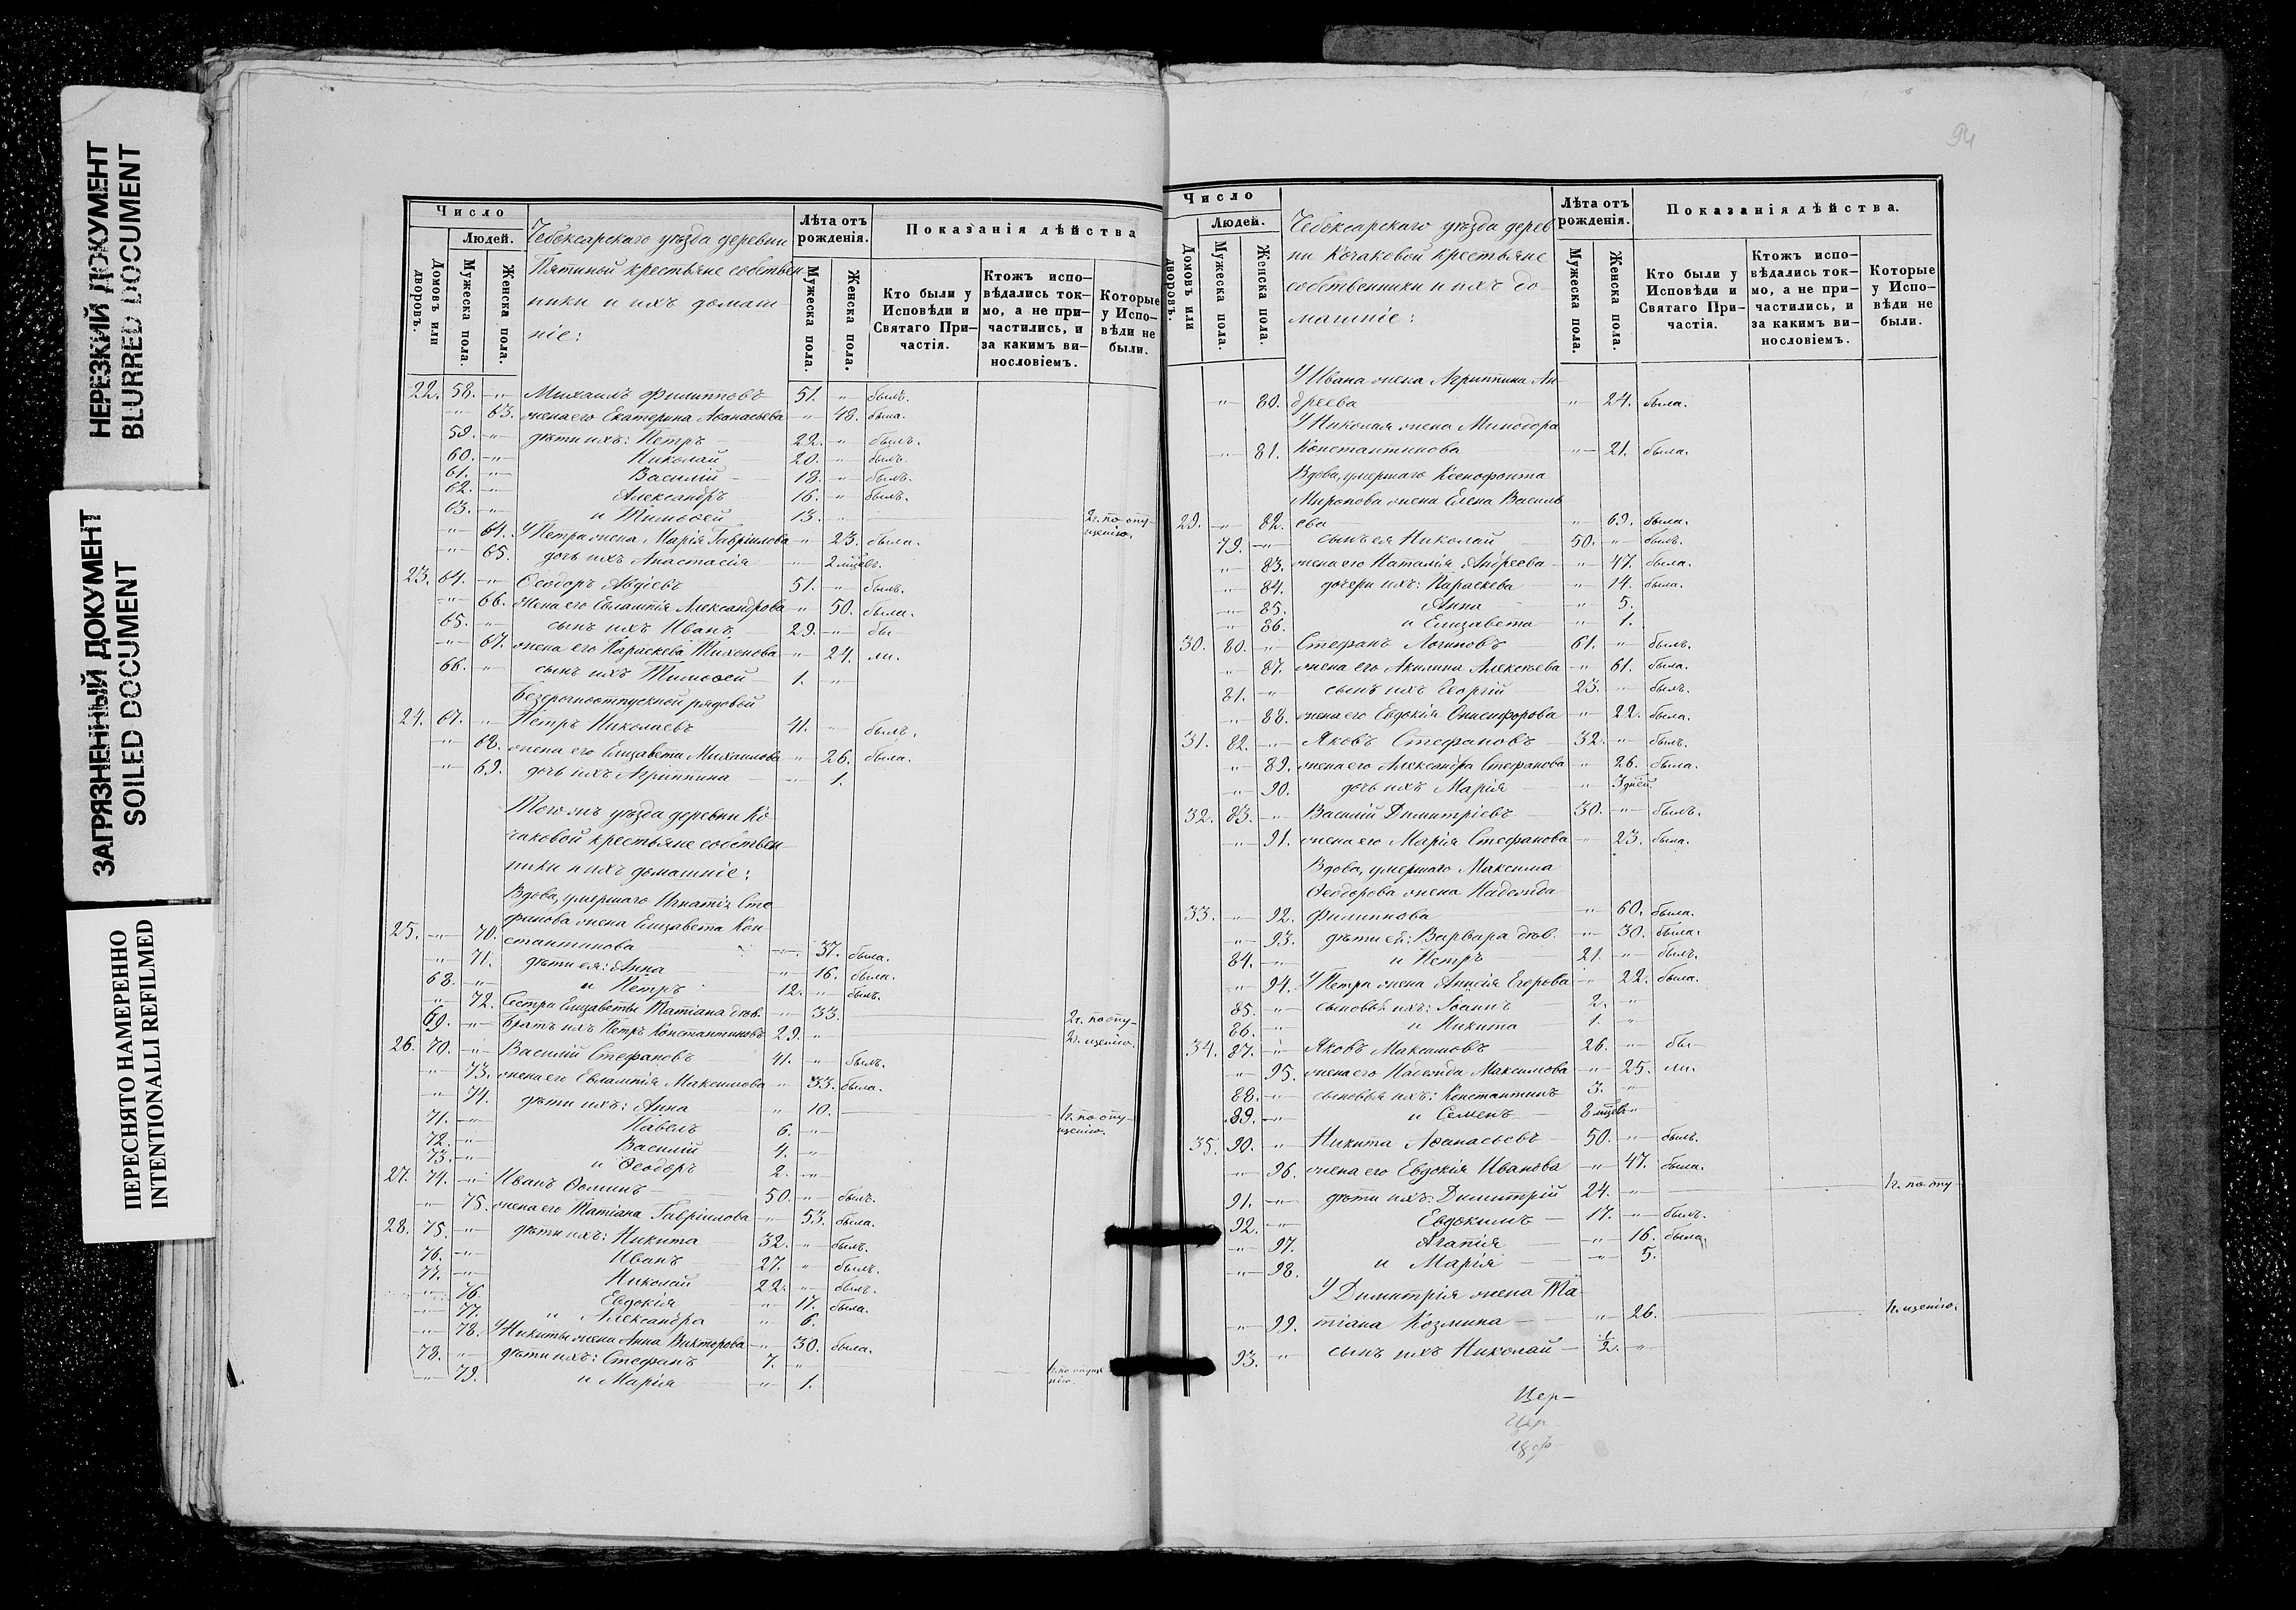 НЕРЕЗКИЙ ДОКУМЕНТ
BLURRED DOCUMENT
ЗАГРЯЗНЕННЫЙ ДОКУМЕНТ
SOILED DOCUMENT
ПЕРЕСНЯТО НАМЕРЕННО
INTENTIONALLI REFILMED
Число
Людей.
Домовъ или дворовъ.
Мужеска пола.
Женска пола.
Чебоксарскаго уѣзда деревни
Пятиной крестьяне собствен
ники и ихъ домаш
ніе:
Лѣта отъ рожденія.
Мужеска пола.
Женска пола.
Показанія дѣйства
Кто были у Исповѣди и Святаго Причастія.
Ктожъ исповѣдались токмо, а не причастились, и за какимъ винословіемъ.
Которые у Исповѣди не были.
22. 58. -"- Михаилъ Филипповъ 51. " былъ.
" 63. жена его Екатерина Аѳанасьева " 48. была.
59. " дѣти ихъ: Петръ 22. " былъ.
60. " Николай 20. " былъ.
61. " Василій 18. " былъ.
62. " Александръ 16. " былъ.
63. " и Тимоѳей 13. " 2г. по опу-
щенію.
" 64. У Петра жена Марія Гавріилова " 23. была.
" 65. дочь ихъ Анастасія " 2 мцѣв.
23. 64. " Ѳеодоръ Авдіевъ 51. " былъ.
" 66. Жена его Евлампія Александрова " 50. была.
65. " сынъ ихъ Иванъ 29. " бы-
" 67. жена его Параскева Тихонова " 24. ли.
66. " сынъ ихъ Тимоѳей 1. "
Безсрочноотпускной рядовой
24. 67. " Петръ Николаевъ 41. " былъ.
" 68. жена его Елизавета Михаилова " 26. была.
" 69. дочь ихъ Агриппина " 1.
Того жъ уѣзда деревни Ко
чаковой крестьяне собствен
ники и ихъ домашніе:
Вдова, умершаго Игнатія Сте
фанова жена Елизавета Кон
25. " 70. стантинова " 37. была.
" 71. дѣти ея: Анна " 16. была.
68. " и Петръ 12. " былъ.
" 72. Сестра Елизаветы Татіана дѣв. " 33. 2г. по опу-
69. " Братъ ихъ Петръ Константиновъ 29. " 2г. щенію.
26. 70. " Василій Стефановъ 41. " былъ.
" 73. жена его Евлампія Максимова " 33. была.
" 74. дѣти ихъ: Анна " 10. 1г. по опу-
щенію.
71. " Павелъ 6. "
72. " Василій 4. "
73. " и Ѳеодоръ 2. "
27. 74. " Иванъ Ѳоминъ 50. " былъ.
" 75. жена его Татіана Гавріилова " 53. была.
28. 75. " дѣти ихъ: Никита 32. " былъ.
76. " Иванъ 27. " былъ.
77. " Николай 22. " былъ.
" 76. Евдокія " 17. была.
" 77. и Александра " 6.
" 78. У Никиты жена Анна Викторова " 30. была.
78. " дѣти ихъ: Стефанъ 7. "
" 79. и Марія " 1.
94
Число
Людей.
Домовъ или дворовъ.
Мужеска пола.
Женска пола.
Чебоксарскаго уѣзда дерев
ни Кочаковой крестьяне
собственники и ихъ до
машніе:
Лѣта отъ рожденія.
Мужеска пола.
Женска пола.
Показанія дѣйства.
Кто были у Исповѣди и Святаго Причастія.
Ктожъ исповѣдались токмо, а не причастились, и за какимъ винословіемъ.
Которые у Исповѣди не были.
У Ивана жена Агриппина Ан
" 80. дреева " 24. была.
У Николая жена Минодора
" 81. Константинова " 21. была.
Вдова, умершаго Ксенофонта
Миронова жена Елена Василь
29. " 82. ева " 69. была.
79. " сынъ ея Николай 50. " былъ.
" 83. жена его Наталія Андреева " 47. была.
" 84. дочери ихъ: Параскева " 14. была.
" 85. Анна " 5.
" 86. и Елизавета " 1.
30. 80. " Стефанъ Логиновъ 61. " былъ.
" 87. жена его Акилина Алексѣева " 61. была.
81. " сынъ ихъ Георгій 23. " былъ.
" 88. жена его Евдокія Онисифорова " 22. была.
31. 82. " Яковъ Стефановъ 32. " былъ.
" 89. жена его Александра Стефанова " 26. была.
" 90. дочь ихъ Марія " 3 дней.
32. 83. " Василій Димитріевъ 30. " былъ.
" 91. жена его Марія Стефанова " 23. была.
Вдова, умершаго Максима
Ѳеодорова жена Надежда
33. " 92. Филиппова " 60. была.
" 93. дѣти ея: Варвара дѣв. " 30. была.
84. " и Петръ 21. " былъ.
" 94. У Петра жена Анисія Егорова " 22. была.
85. " сыновья ихъ: Іоаннъ 2. "
86. " и Никита 1. "
34. 87. " Яковъ Максимовъ 26. " бы-
" 95. жена его Надежда Максимова " 25. ли.
88. " сыновья ихъ: Константинъ 3. "
89. " и Семенъ 8 мцѣв. "
35. 90. " Никита Аѳанасьевъ 50. " былъ.
" 96. жена его Евдокія Иванова " 47. была.
91. " дѣти ихъ: Димитрій 24. " 1г. по опу-
92. " Евдокимъ 17. " былъ.
" 97. Агапія " 16. была
" 98. и Марія " 5.
У Димитрія жена Та
" 99. тіана Козмина " 26. 1г. щенію.
93. " сынъ ихъ Николай ½. "
Цер-
Цер